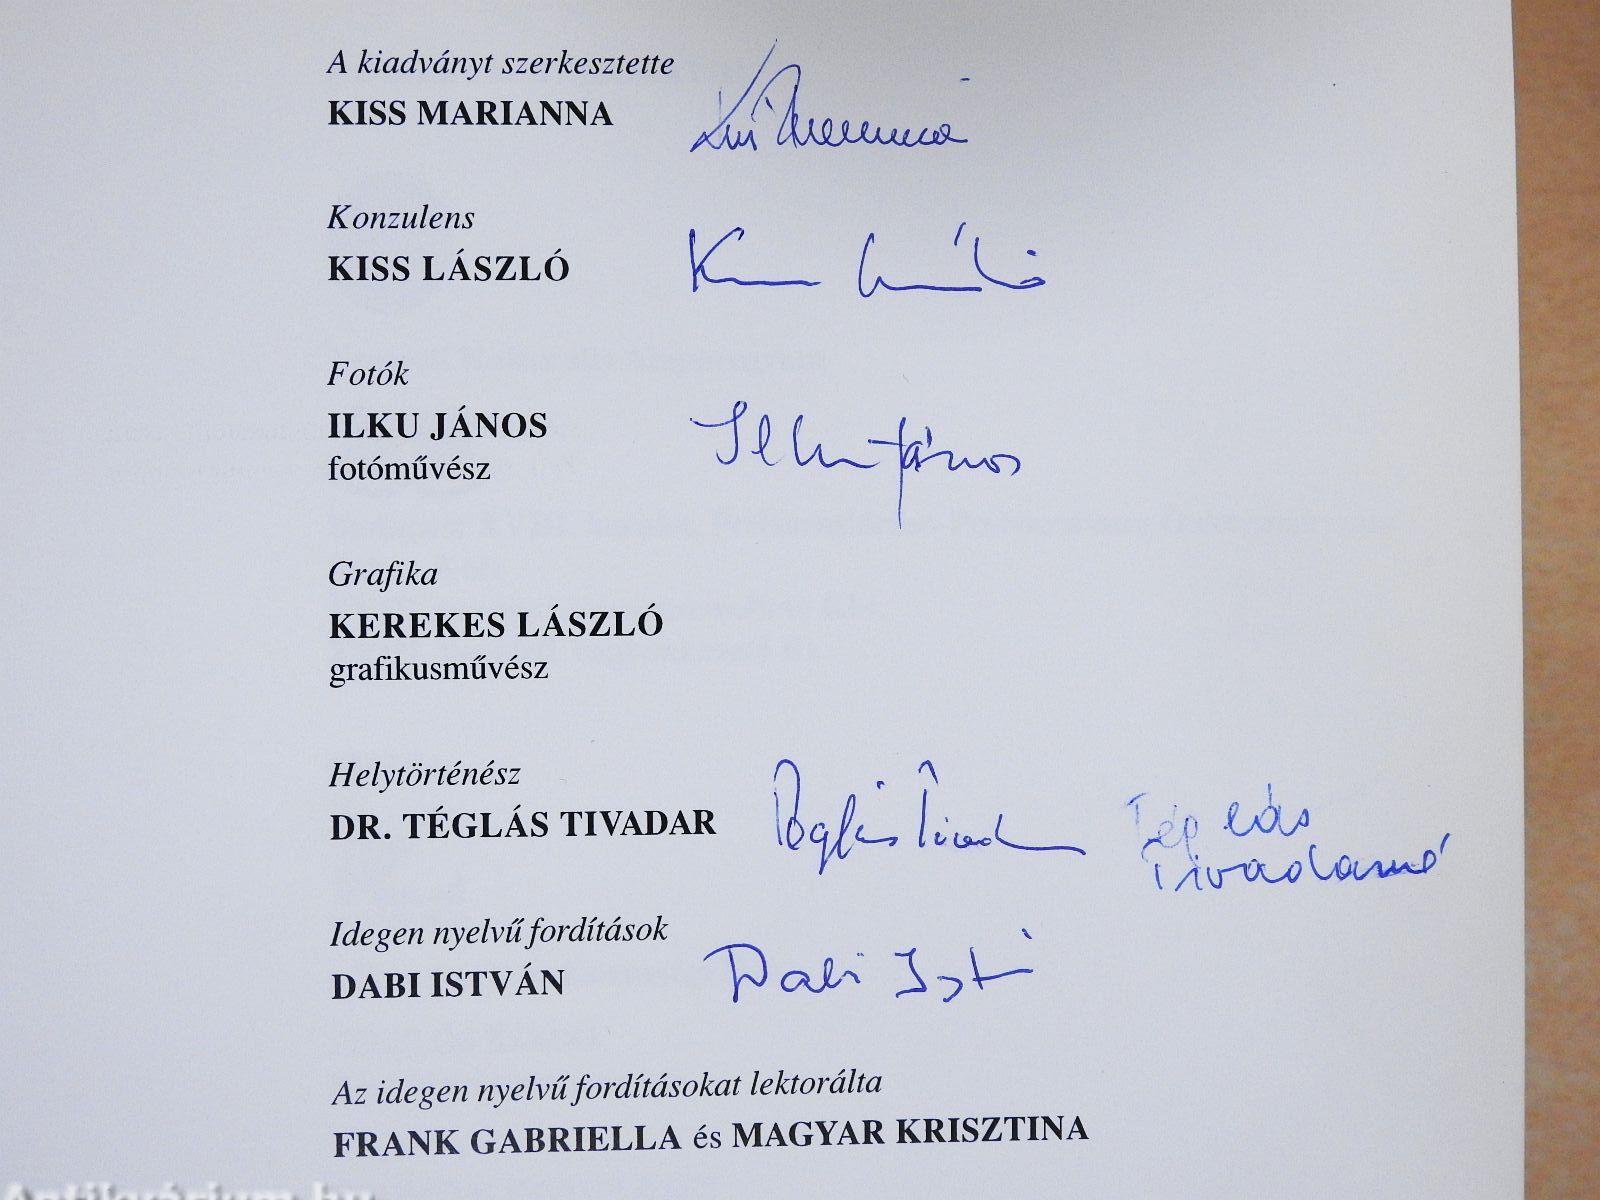 A kiadványt szerkesztette
KISS MARIANNA
Kiss Marianna
Konzulens
KISS LÁSZLÓ
Kiss László
Fotók
ILKU JÁNOS
Ilku János
fotóművész
Grafika
KEREKES LÁSZLÓ
grafikusművész
Helytörténész
DR. TÉGLÁS TIVADAR
Téglás Tivadar
Téglás
Tivadarné
Idegen nyelvű fordítások
DABI ISTVÁN
Dabi István
Az idegen nyelvű fordításokat lektorálta
FRANK GABRIELLA és MAGYAR KRISZTINA
Antikvárium.hu